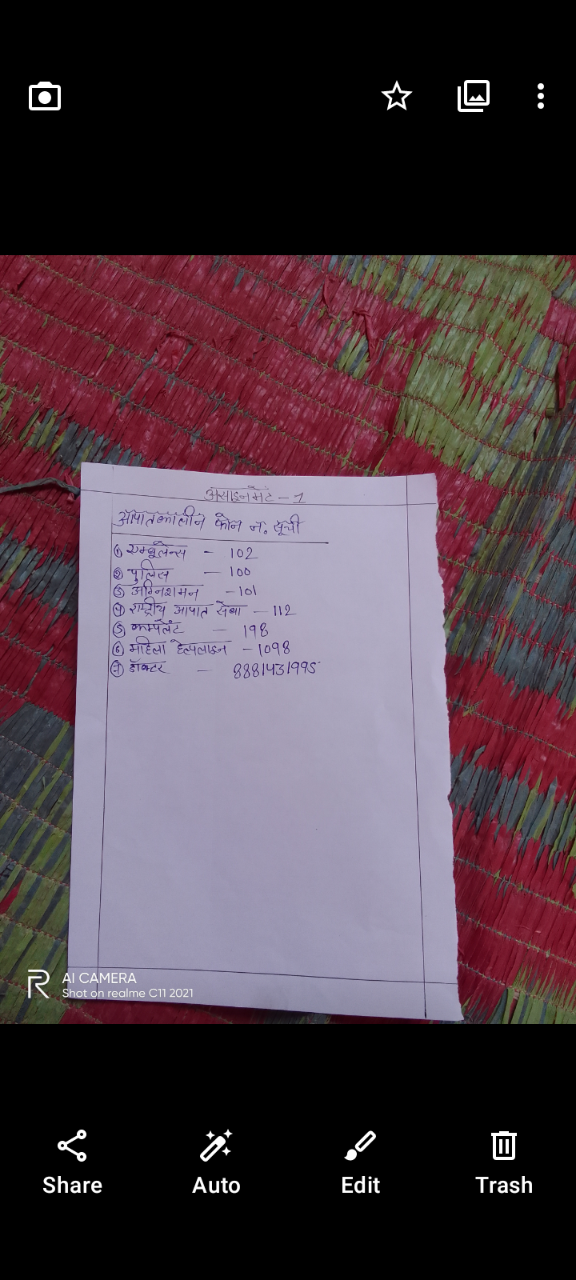 असाइनमेंट - 1
आपातकालीन फोन न. सूची
① एम्बूलेन्स - 102
② पुलिस - 100
③ अग्निशमन - 101
④ राष्ट्रीय आपात सेवा - 112
⑤ कम्पलेंट - 198
⑥ महिला हेल्पलाइन - 1098
⑦ डॉक्टर - 8881431995
AI CAMERA
Shot on realme C11 2021
Share Auto Edit Trash